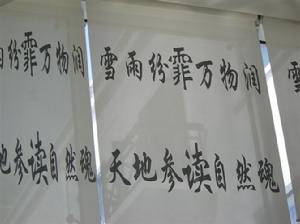 雪雨纷霏万物润 雪雨纷霏万物润 雪
天地参读自然瑰 天地参读自然瑰